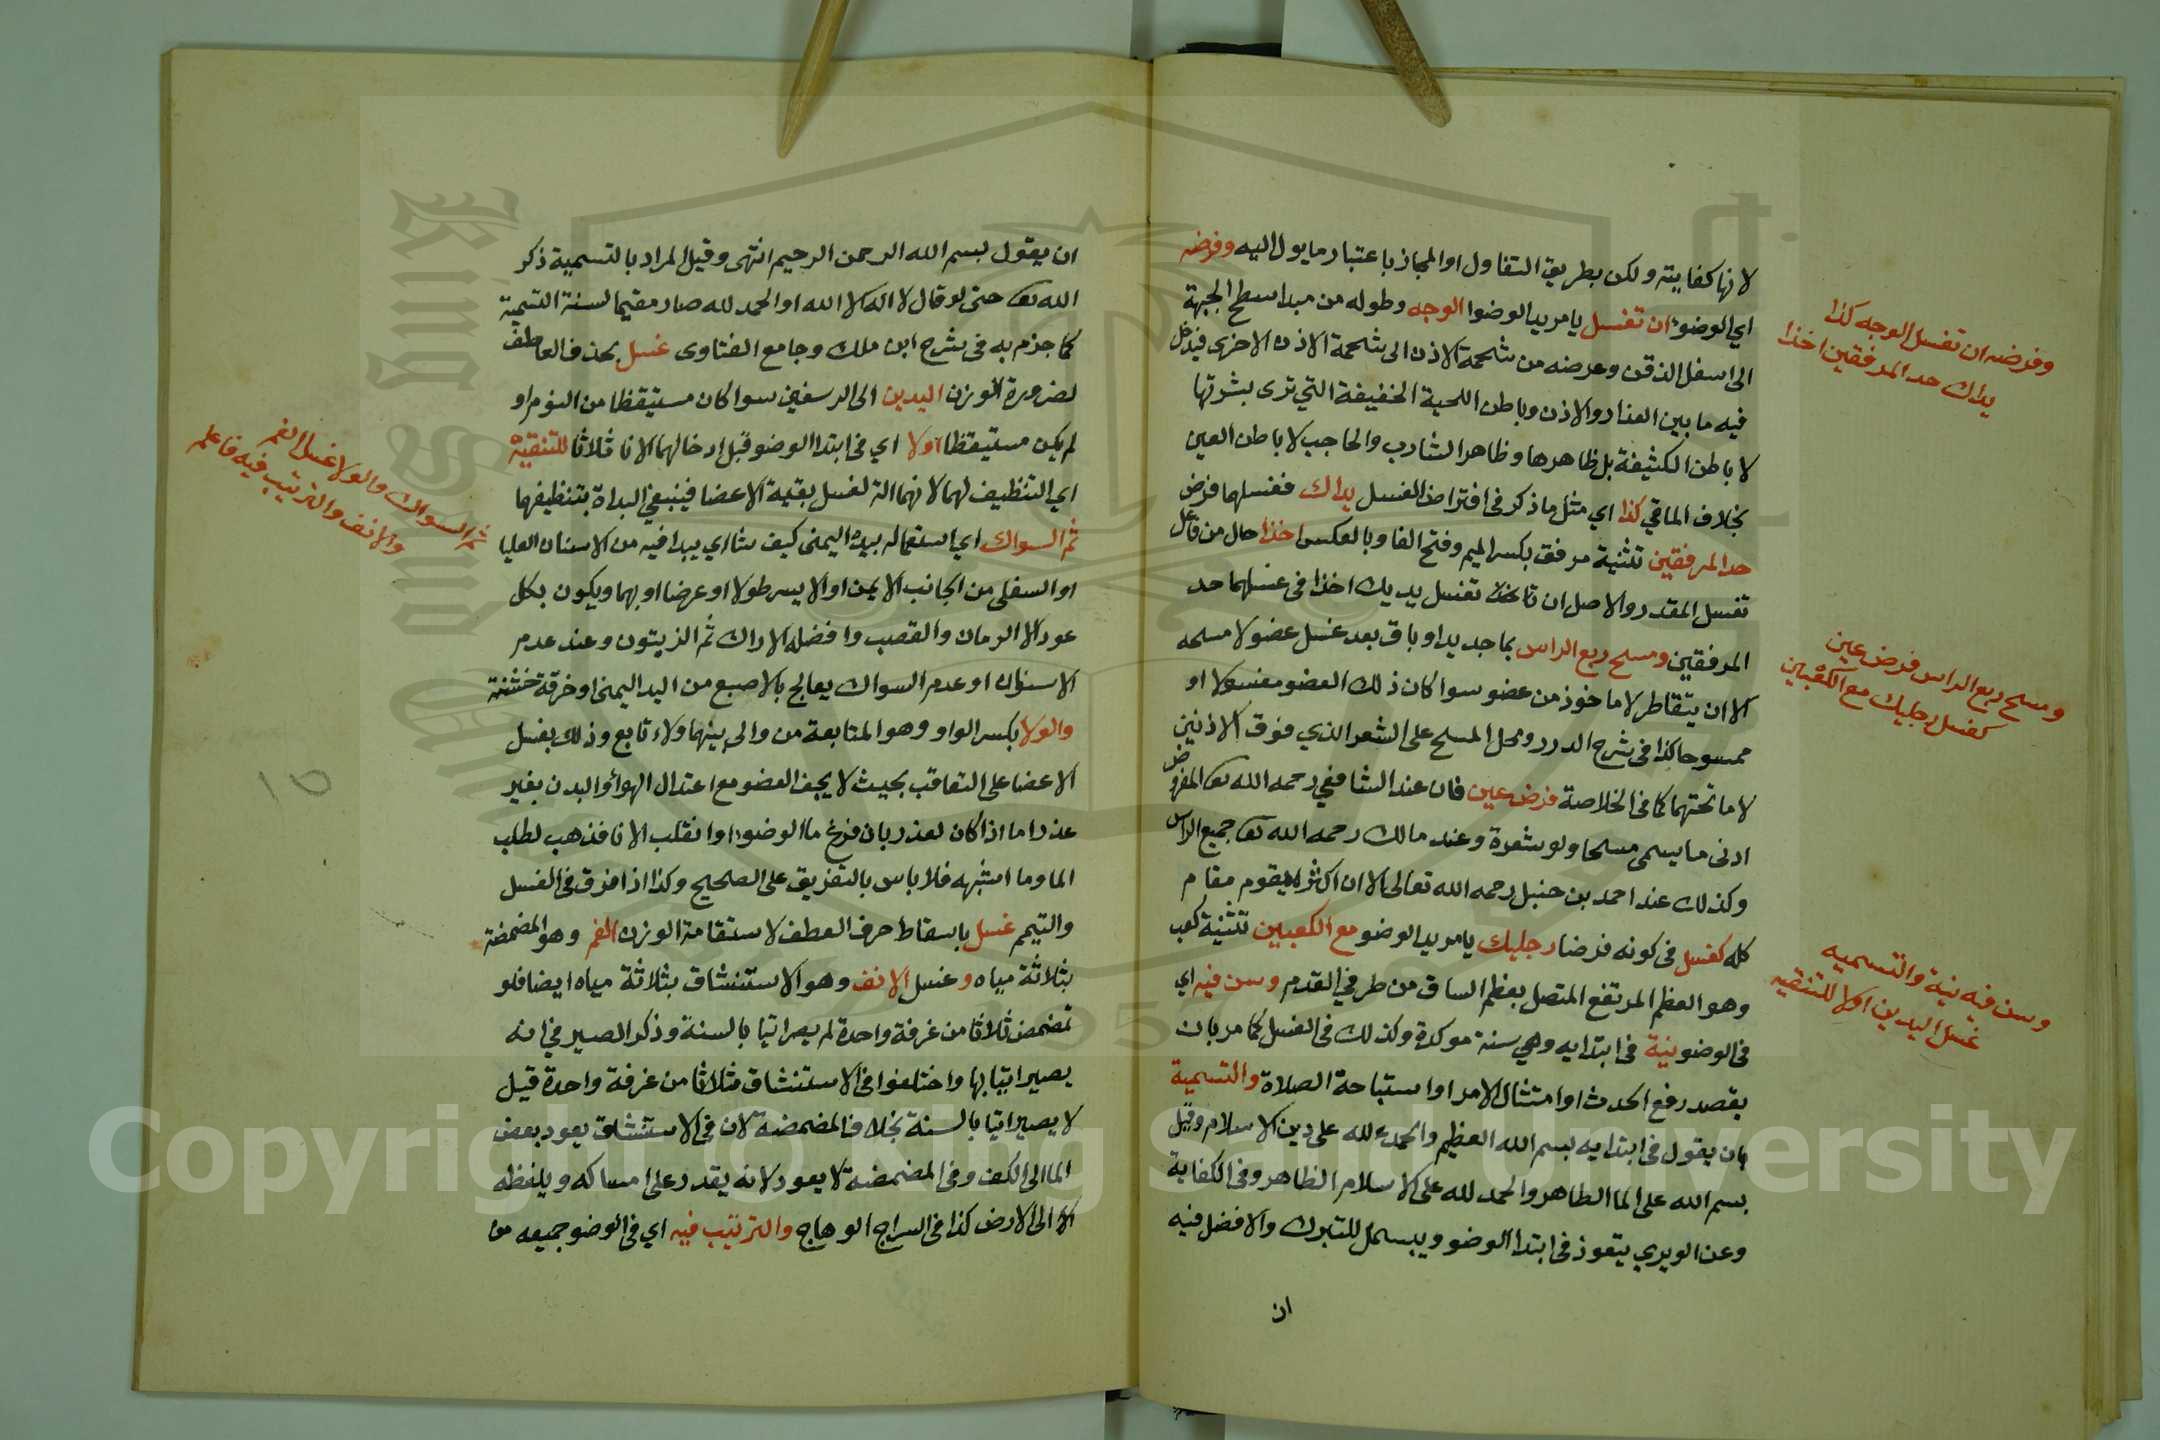 لانها كفايته ولكن بطريق التفاول او المجاز باعتبار ما يول اليه وفرضه
اي الوضوء ان تغسل يا مريد الوضوا الوجه وطوله من مبدا سطح الجبهة
الى اسفل الذقن وعرضه من شحمة الاذن الى شحمة الاذن الاخرى فيدخل
فيه ما بين العذار والاذن وباطن اللحية الخفيفة التي ترى بشرتها
لا باطن الكثيفة بل ظاهرها وظاهر الشارب والحاجب لا باطن العين
بخلاف الماقي كذا اي مثل ما ذكر في افتراض الغسل يداك فغسلهما فرض
حد المرفقين تثنية مرفق بكسر الميم وفتح الفا وبالعكس اخذا حال من فاعل
تغسل المقدر والاصل ان تغسل يديك اخذا في غسلهما حد
المرفقين ومسح ربع الراس بما جديد او باق بعد غسل عضو لا مسحه
الا ان يتقاطر لا ماخوذ من عضو سوا كان ذلك العضو مغسولا او
ممسوحا كذا في شرح الدرر ومحل المسح على الشعر الذي فوق الاذنين
لا ما تحتهما كما في الخلاصة فرض عين فان عند الشافعي رحمه الله تعا المفروض
ادنى ما يسمى مسحا ولو شعرة وعند مالك رحمه الله تعا جميع الراس
وكذلك عند احمد بن حنبل رحمه الله تعالى الا ان اكثره يقوم مقام
كله كغسل في كونه فرضا رجليك يا مريد الوضو مع الكعبين تثنية كعب
وهو العظم المرتفع المتصل بعظم الساق من طرفي القدم وسن فيه اي
في الوضو نية في ابتدايه وهي سنة موكدة وكذلك في الغسل كما مر بان
يقصد رفع الحدث او امتثال الامر او استباحة الصلاة والتسمية
بان يقول في ابتدايه بسم الله العظيم والحمد لله على دين الاسلام وقيل
بسم الله على الما الطاهر والحمد لله على الاسلام الظاهر وفي الكفاية
وعن الوبري يتعوذ في ابتدا الوضو ويبسمل للتبرك والافضل فيه
ان
وفرضه ان تغسل الوجه كذا
يداك حد المرفقين اخذا
ومسح ربع الراس فرض عين
كغسل رجليك مع الكعبين
وسن فيه نية والتسميه
غسل اليدين اولا للتنقيه
ان يقول بسم الله الرحمن الرحيم انتهى وقيل المراد بالتسمية ذكر
الله تعا حتى لو قال لا اله الا الله او الحمد لله صار مقيما لسنة التسمية
كما جزم به في شرح ابن ملك وجامع الفتاوى غسل بحذف العاطف
لضرورة الوزن اليدين الى الرسغين سوا كان مستيقظا من النوم او
لم يكن مستيقظا اولا اي في ابتدا الوضو قبل ادخالهما الانا ثلاثا للتنقيه
اي التنظيف لهما لانهما الة لغسل بقية الاعضا فينبغي البداة بتنظيفهما
ثم السواك اي استعماله بيده اليمنى كيف شا اي يبدا فيه من الاسنان العليا
او السفلى من الجانب الايمن او الايسر طولا او عرضا او بهما ويكون بكل
عود الا الرمان والقصب وافضله الاراك ثم الزيتون وعند عدم
الاسنان او عدم السواك يعالج بالاصبع من اليد اليمنى او خرقة خشنة
والولا بكسر الواو وهو المتابعة من والى بينهما ولاء تابع وذلك بغسل
الاعضا على التعاقب بحيث لا يجف العضو مع اعتدال الهواء والبدن بغير
عذر اما اذا كان لعذر بان فرغ ما الوضوء او انقلب الانا فذهب لطلب
الما وما اشبهه فلا باس بالتفريق على الصحيح وكذا اذا فرق في الغسل
والتيمم غسل باسقاط حرف العطف لاستقامة الوزن الفم وهو المضمضة
بثلاثة مياه وغسل الانف وهو الاستنشاق بثلاثة مياه ايضا فلو
تمضمض ثلاثا من غرفة واحدة لم يصر اتيا بالسنة وذكر الصيرفي انه
يصير اتيا بها واختلفوا في الاستنشاق ثلاثا من غرفة واحدة قيل
لا يصير اتيا بالسنة بخلاف المضمضة لان في الاستنشاق يعود بعض
الما الى الكف وفي المضمضة لا يعود لانه يقدر على امساكه ويلفظه
الى الارض كذا في السراج الوهاج والترتيب فيه اي في الوضو جميعه
ثم السواك والولا غسل الفم
والانف والترتيب فيه فاعلم
١٥
King Saud University
1957
Copyright © King Saud University